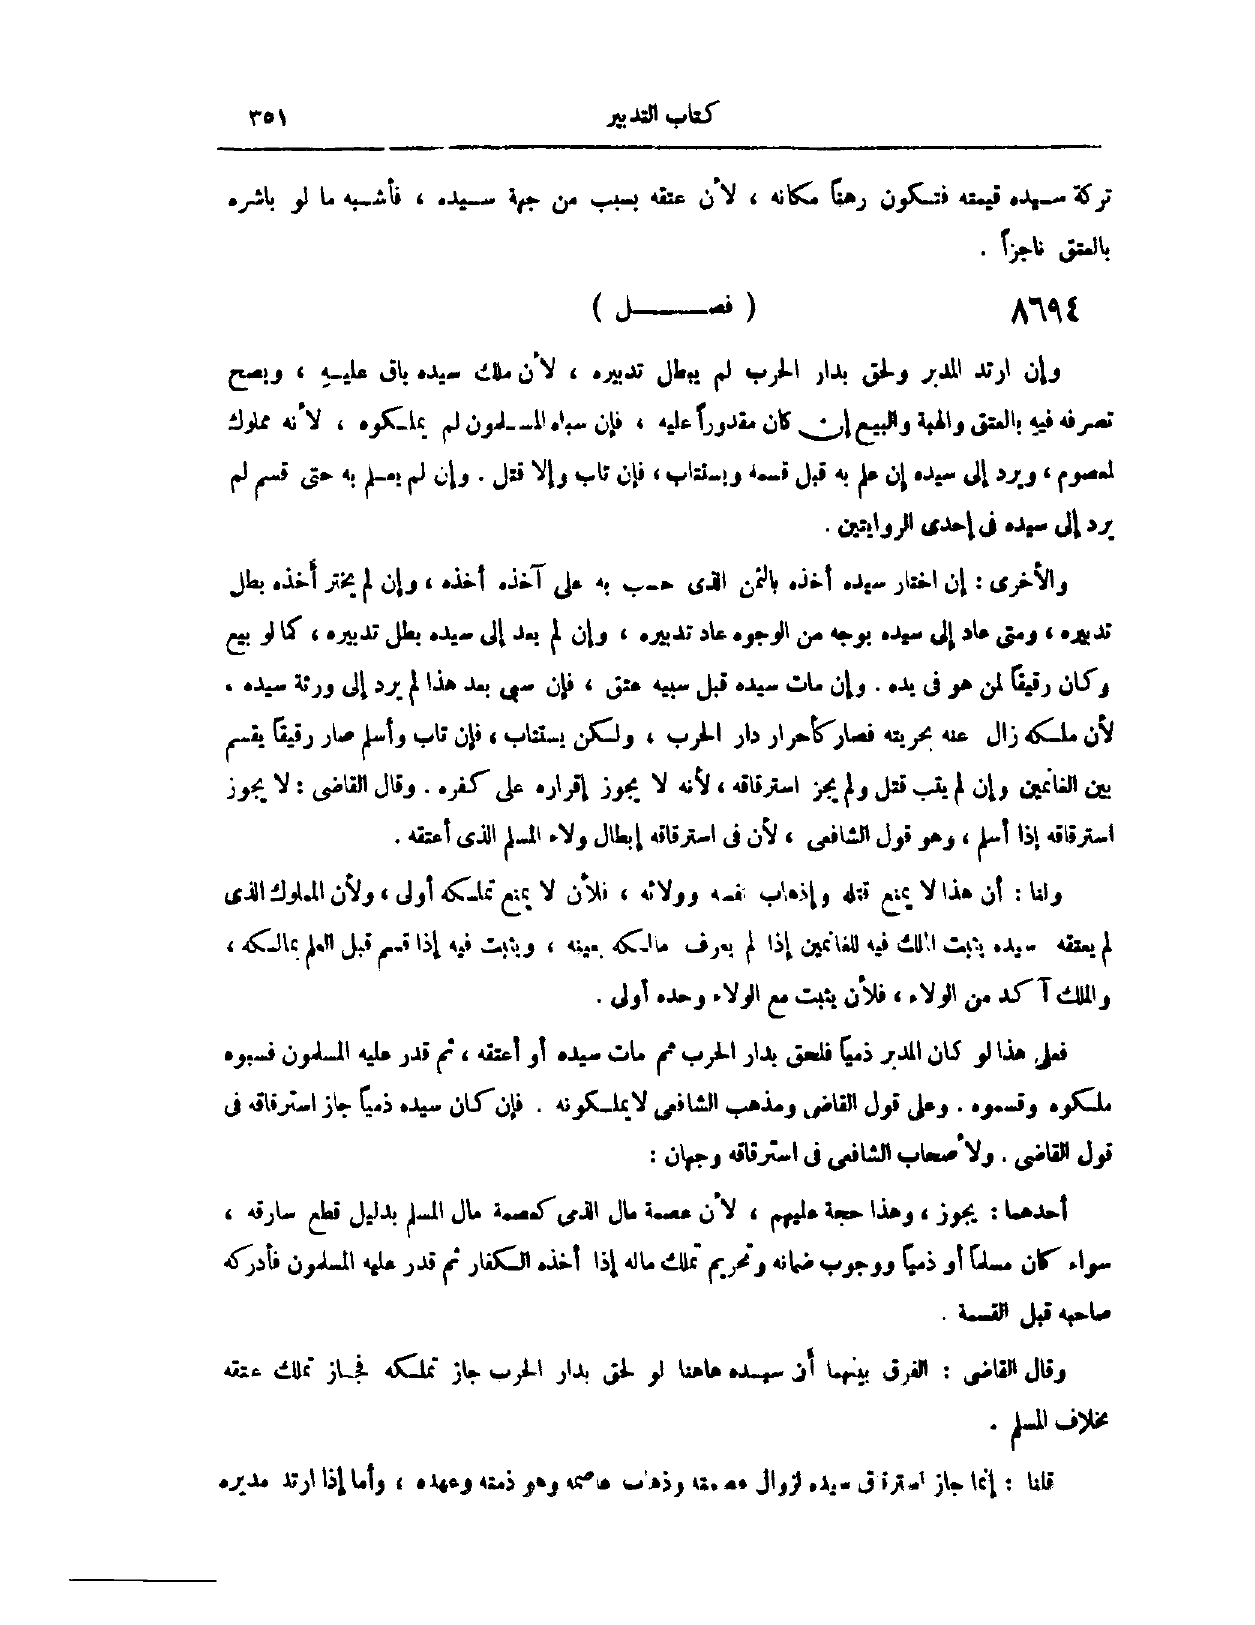 كتاب التدبير ٣٥١
تركة سيده قيمته فتكون رهناً مكانه ، لأن عتقه بسبب من جهة سيده ، فأشبه ما لو باشره
بالعتق ناجزاً .
٨٦٩٤ ( فصل )
وإن ارتد المدبر ولحق بدار الحرب لم يبطل تدبيره ، لأن ملك سيده باق عليه ، ويصح
تصرفه فيه بالعتق والهبة والبيع إن كان مقدوراً عليه ، فإن سباه المسلمون لم يملكوه ، لأنه مملوك
لمعصوم ، ويرد إلى سيده إن علم به قبل قسمه ويستتاب ، فإن تاب وإلا قتل . وإن لم يعلم به حتى قسم لم
يرد إلى سيده فى إحدى الروايتين .
والأخرى : إن اختار سيده أخذه بالثمن الذى حسب به على آخذه أخذه ، وإن لم يختر أخذه بطل
تدبيره ، ومتى عاد إلى سيده بوجه من الوجوه عاد تدبيره ، وإن لم يعد إلى سيده بطل تدبيره ، كما لو بيع
وكان رقيقاً لمن هو فى يده . وإن مات سيده قبل سبيه عتق ، فإن سبى بعد هذا لم يرد إلى ورثة سيده ،
لأن ملكه زال عنه بحريته فصار كأحرار دار الحرب ، ولكن يستتاب ، فإن تاب وأسلم صار رقيقاً يقسم
بين الغانمين وإن لم يتب قتل ولم يجز استرقاقه ، لأنه لا يجوز إقراره على كفره . وقال القاضى : لا يجوز
استرقاقه إذا أسلم ، وهو قول الشافعى ، لأن فى استرقاقه إبطال ولاء المسلم الذى أعتقه .
ولنا : أن هذا لا يمنع قتله وإذهاب نفسه وولائه ، فلأن لا يمنع تملكه أولى ، ولأن المملوك الذى
لم يعتقه سيده يثبت الملك فيه للغانمين إذا لم يعرف مالكه بعينه ، ويثبت فيه إذا قسم قبل العلم بمالكه ،
والملك آكد من الولاء ، فلأن يثبت مع الولاء وحده أولى .
فعلى هذا لو كان المدبر ذمياً فلحق بدار الحرب ثم مات سيده أو أعتقه ، ثم قدر عليه المسلمون فسبوه
ملكوه وقسموه . وعلى قول القاضى ومذهب الشافعى لا يملكونه . فإن كان سيده ذمياً جاز استرقاقه فى
قول القاضى . ولأصحاب الشافعى فى استرقاقه وجهان :
أحدهما : يجوز ، وهذا حجة عليهم ، لأن عصمة مال الذمى كعصمة مال المسلم بدليل قطع سارقه ،
سواء كان مسلماً أو ذمياً ووجوب ضمانه وتحريم تملك ماله إذا أخذه الكفار ثم قدر عليه المسلمون فأدركه
صاحبه قبل القسمة .
وقال القاضى : الفرق بينهما أن سيده هاهنا لو لحق بدار الحرب جاز تملكه فجاز تملك عتقه
بخلاف المسلم .
قلنا : إنما جاز استرقاق سيده لزوال عصمته وذهاب عاصمه وهو ذمته وعهده ، وأما إذا ارتد مدبره